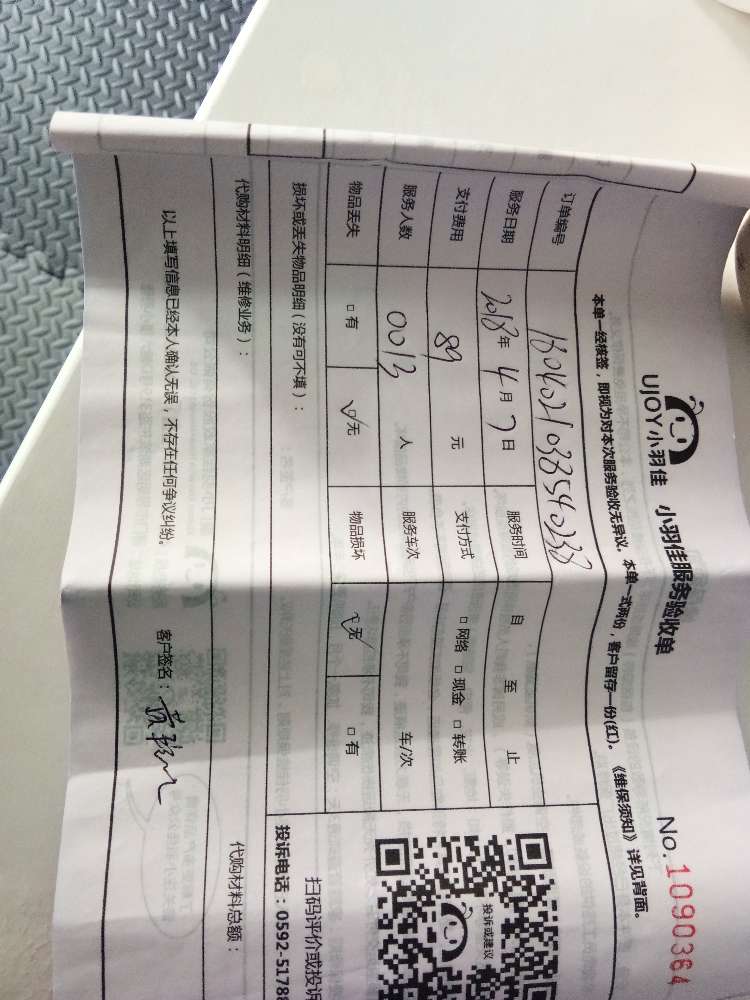 UJOY小羽佳 小羽佳服务验收单 No.1090364
本单一经核签，即视为对本次服务验收无异议。本单一式两份，客户留存一份(红)。《维保须知》详见背面。
订单编号 1804021038540238
服务日期 2018年4月7日 服务时间 自 至 止
支付费用 89 元 支付方式 □网络 □现金 □转账
服务人数 0013 人 服务车次 车/次
物品丢失 □有 □无 物品损坏 □无 □有
损坏或丢失物品明细（没有可不填）：
代购材料明细（维修业务）：
代购材料总额：
投诉或建议
扫码评价或投诉
投诉电话：0592-5178
以上填写信息已经本人确认无误，不存在任何争议纠纷。
客户签名：